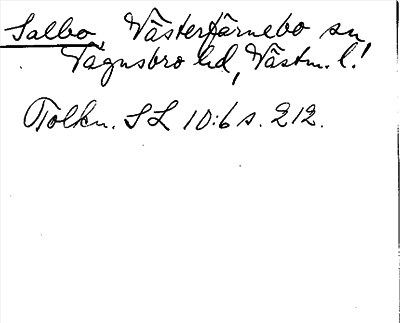 Salbo, Västerfärnebo sn,
Vagnsbro hd, Västm. l.!
Tolkn. SL 10:6 s. 212.